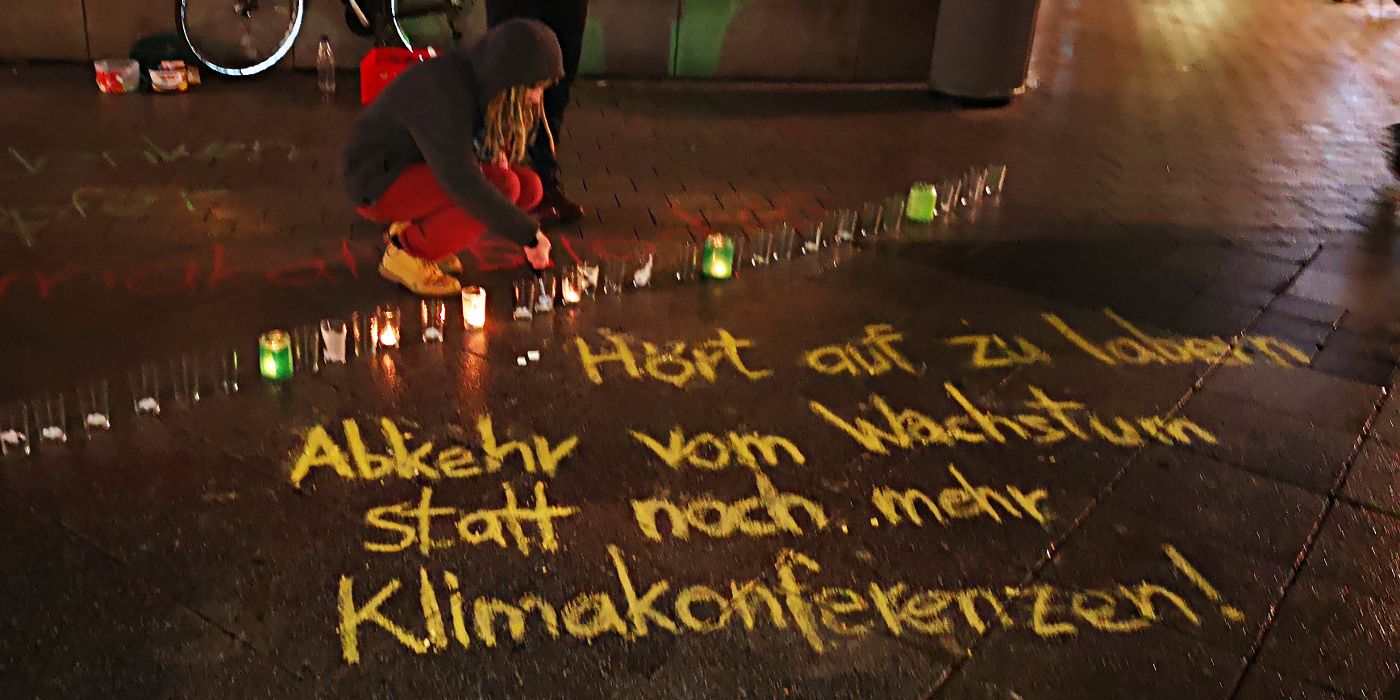 Hört auf zu labern
Abkehr vom Wachstum
statt noch mehr
Klimakonferenzen!